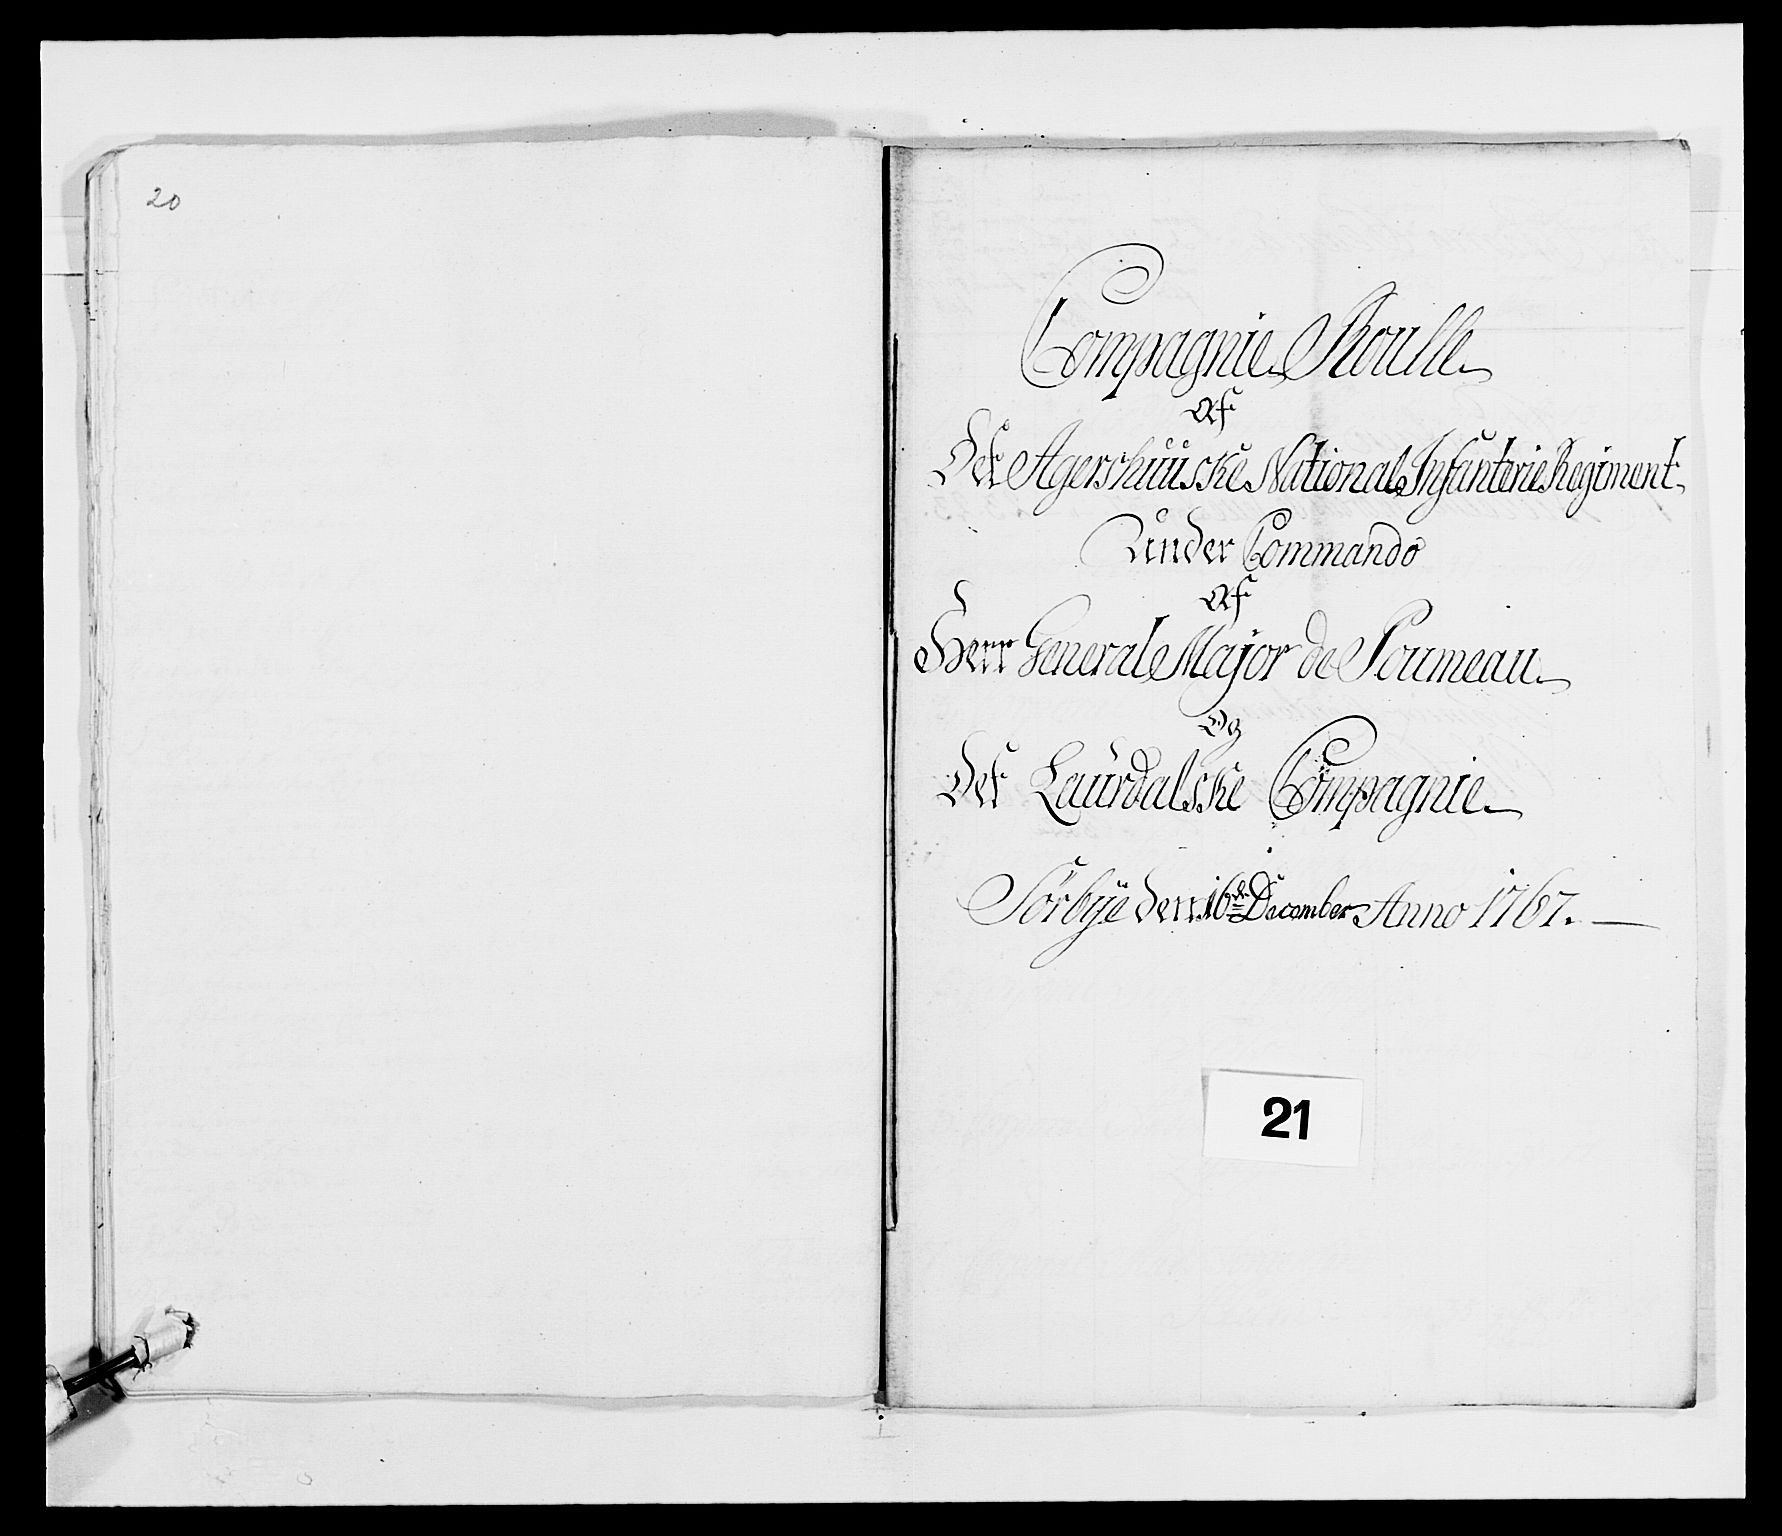 20
Compagnie Roulle
Af
Det Agershuuske National Infanterie Regiment
Under Commando
Af
Herr General Major de Poumeau
Og
Det Laurdalske Compagnie
Sörbÿe den 16de December Anno 1767.
21